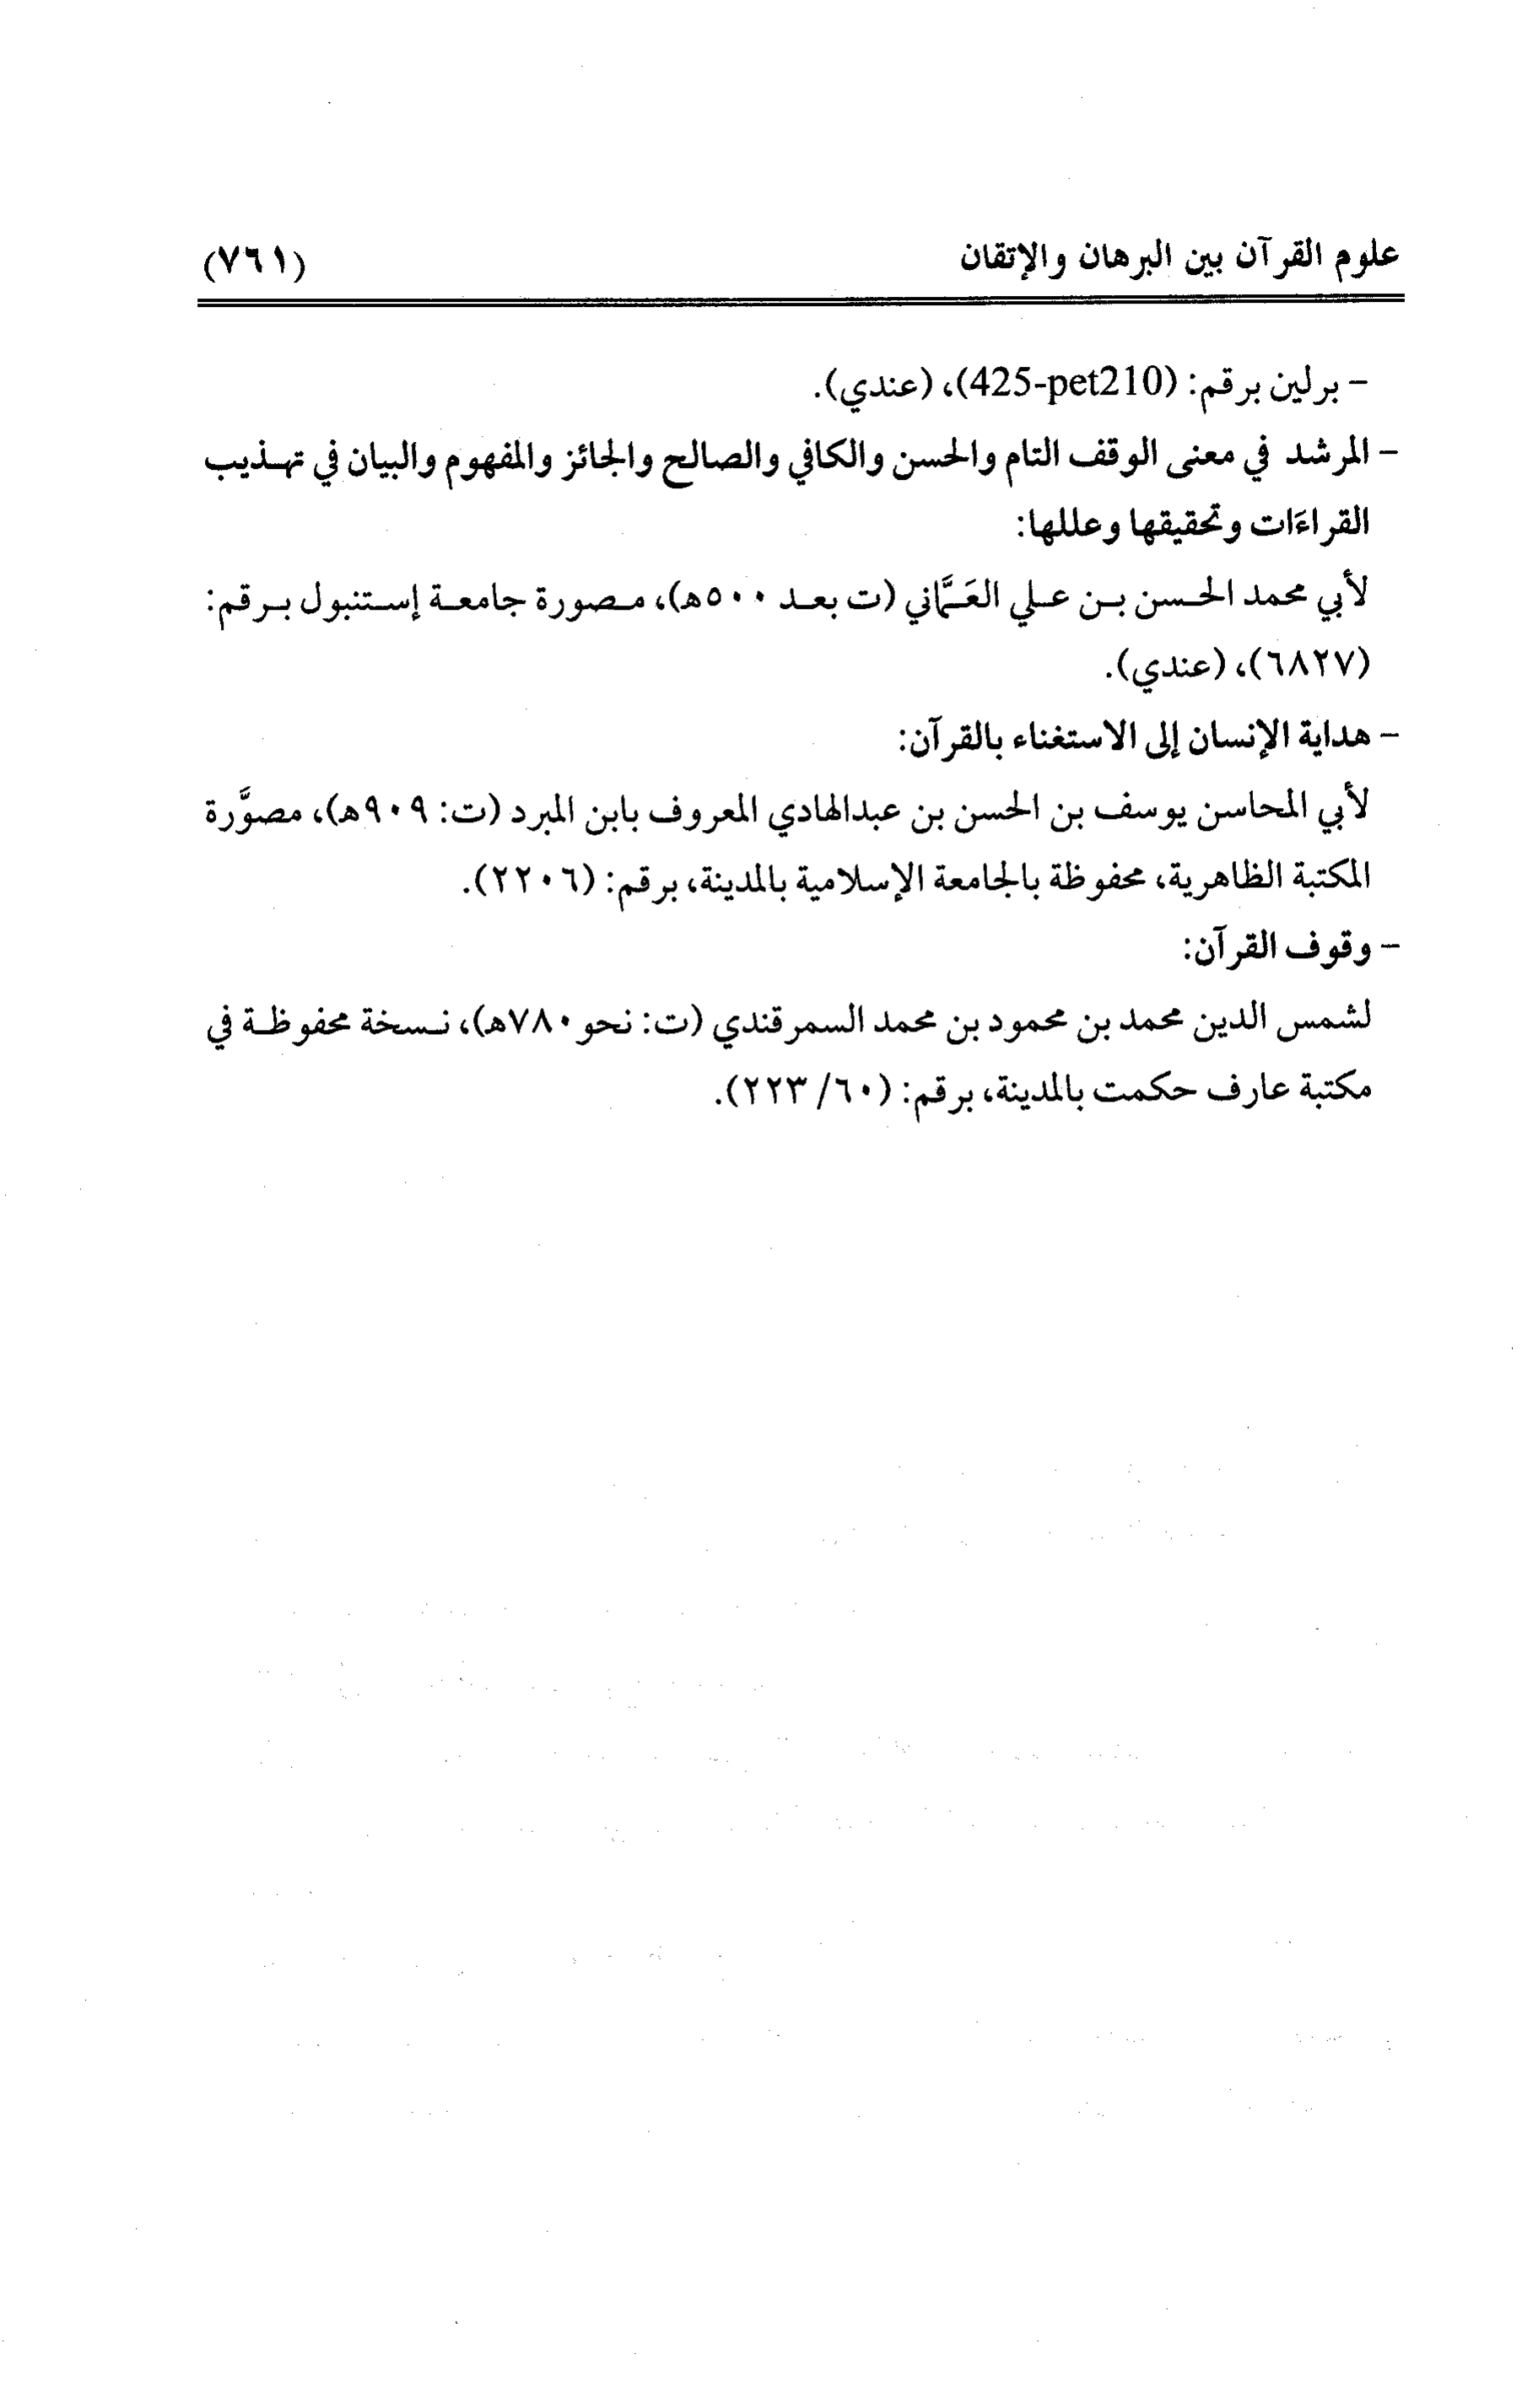 علوم القرآن بين البرهان والإتقان (٧٦١)
- برلين برقم: (425-pet210)، (عندي).
- المرشد في معنى الوقف التام والحسن والكافي والصالح والجائز والمفهوم والبيان في تهذيب
القراءَات وتحقيقها وعللها:
لأبي محمد الحسن بن علي العَمَّاني (ت بعد ٥٠٠هـ)، مصورة جامعة إستنبول برقم:
(٦٨٢٧)، (عندي).
- هداية الإنسان إلى الاستغناء بالقرآن:
لأبي المحاسن يوسف بن الحسن بن عبدالهادي المعروف بابن المبرد (ت: ٩٠٩هـ)، مصوَّرة
المكتبة الظاهرية، محفوظة بالجامعة الإسلامية بالمدينة، برقم: (٢٢٠٦).
- وقوف القرآن:
لشمس الدين محمد بن محمود بن محمد السمرقندي (ت: نحو ٧٨٠هـ)، نسخة محفوظة في
مكتبة عارف حكمت بالمدينة، برقم: (٢٢٣/٦٠).